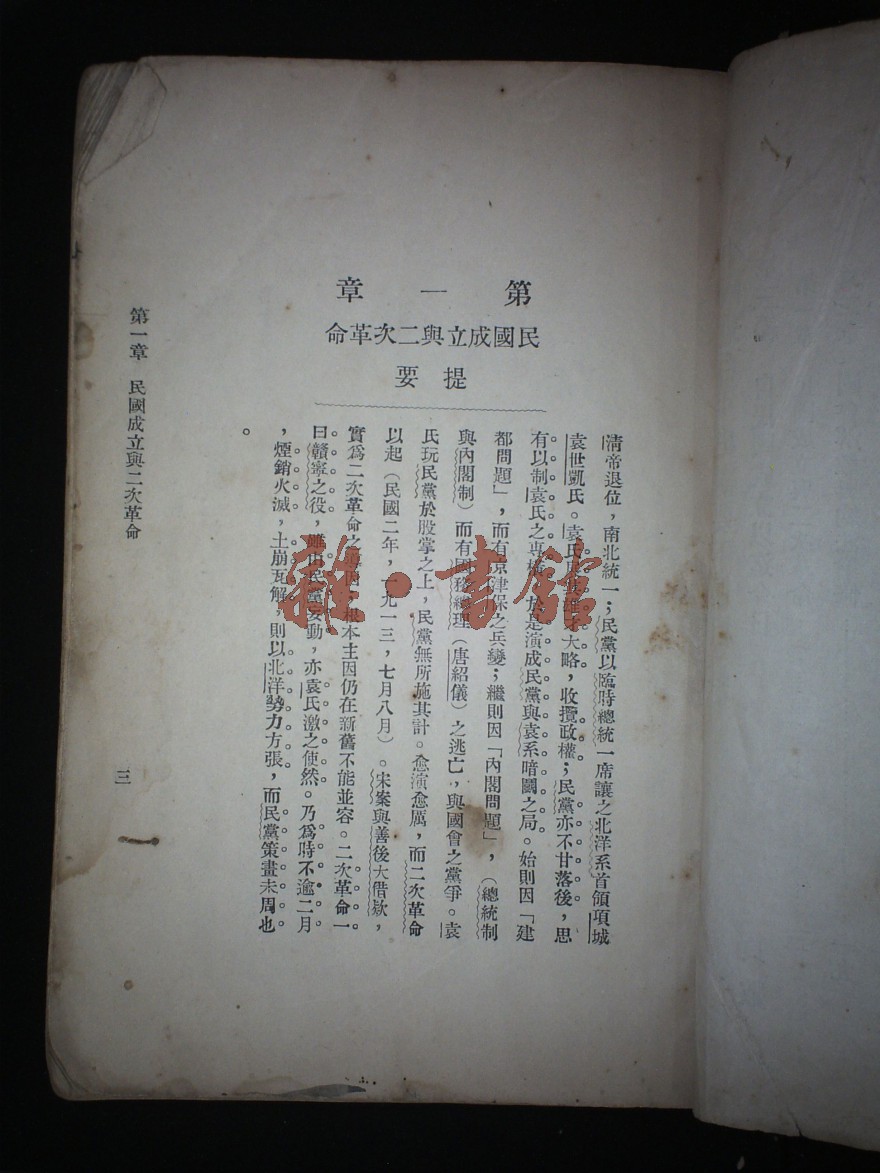 第一章
民國成立與二次革命
提要
清帝退位，南北統一；民黨以臨時總統一席讓之北洋系首領項城
袁世凱氏。袁氏大略，收攬政權；民黨亦不甘落後，思
有以制袁氏之專橫，於是演成民黨與袁系暗鬭之局。始則因「建
都問題」，而有京津保之兵變；繼則因「內閣問題」，（總統制
與內閣制）而有國務總理（唐紹儀）之逃亡，與國會之黨爭。袁
氏玩民黨於股掌之上，民黨無所施其計。愈演愈厲，而二次革命
以起（民國二年，一九一三，七月八月）。宋案與善後大借欵，
實爲二次革命之根本主因仍在新舊不能並容。二次革命一
曰贛寧之役，雖由民黨妄動，亦袁氏激之使然。乃爲時不逾二月
，煙銷火滅，土崩瓦解，則以北洋勢力方張，而民黨策畫未周也
。
第一章 民國成立與二次革命
三
雜·書館